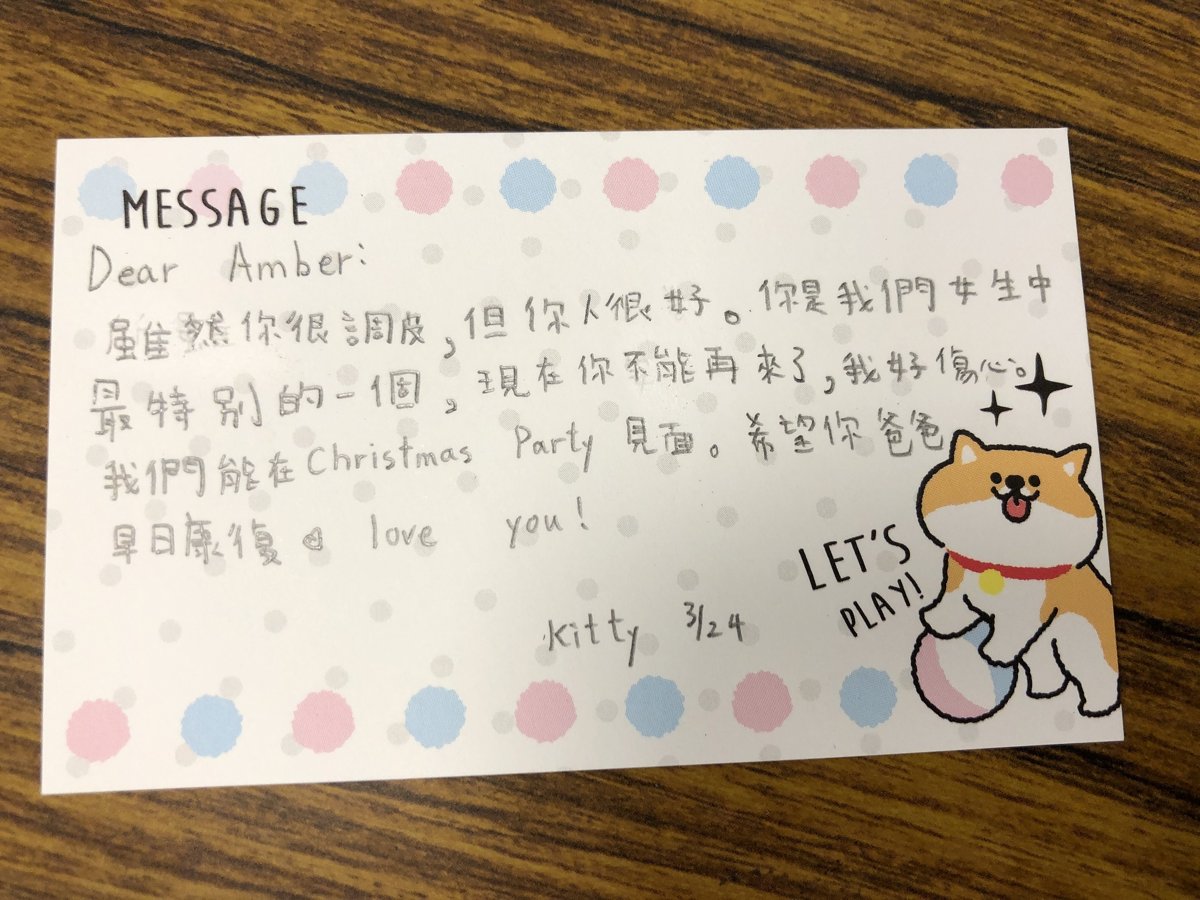 MESSAGE
Dear Amber:
雖然你很調皮,但你人很好。你是我們女生中
最特別的一個,現在你不能再來了,我好傷心。
我們能在Christmas Party 見面。希望你爸爸
早日康復 love you!
Kitty 3/24
LET'S
PLAY!